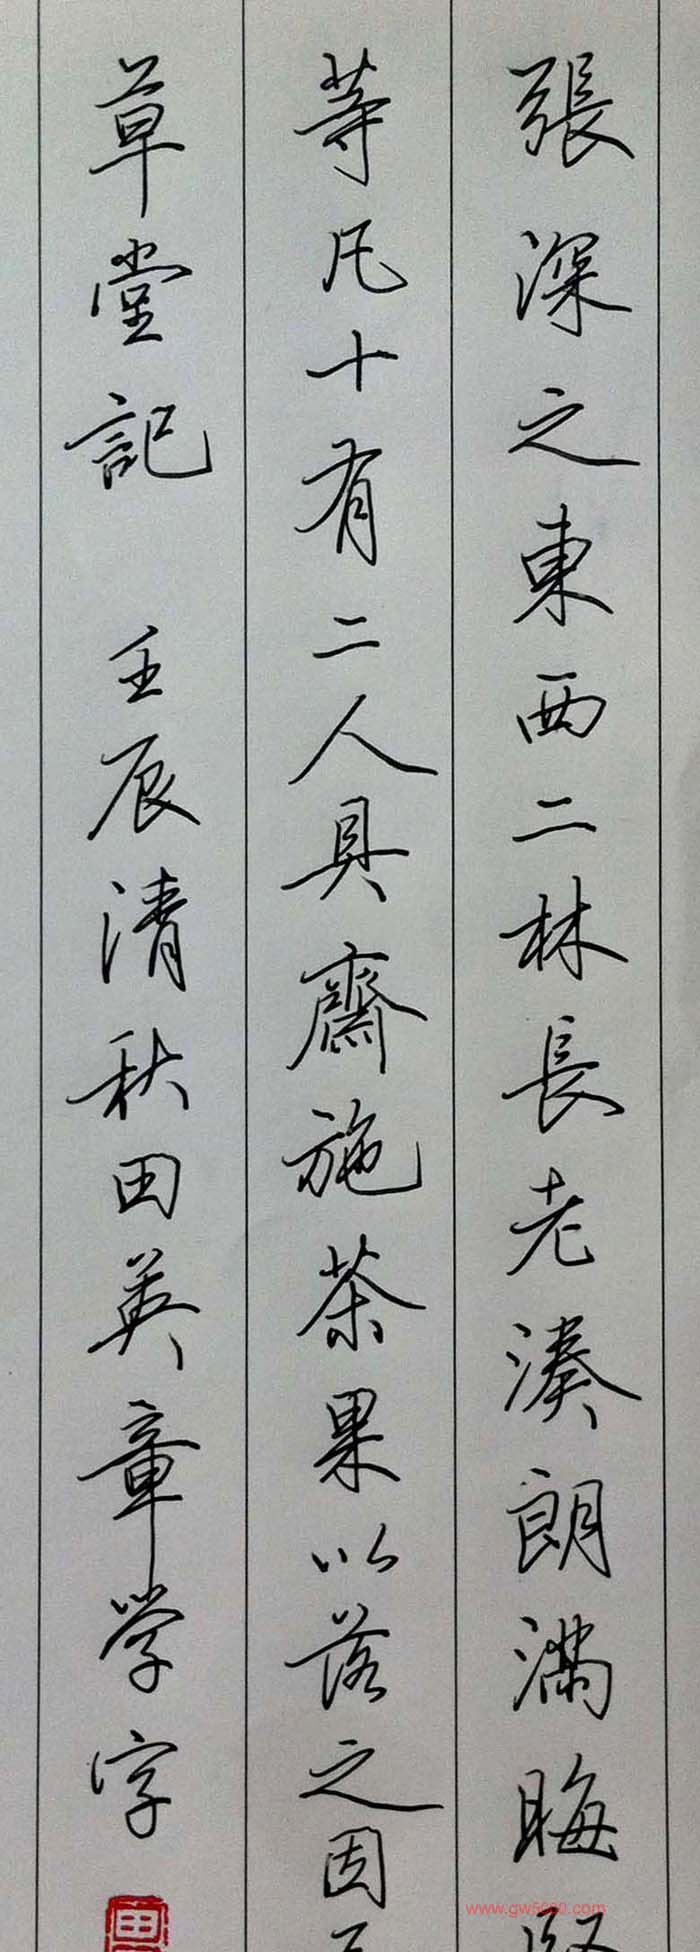 張深之東西二林長老湊朗滿晦
等凡十有二人具齋施茶果以落之因
草堂記 壬辰清秋田英章学字
田
www.gw5000.com